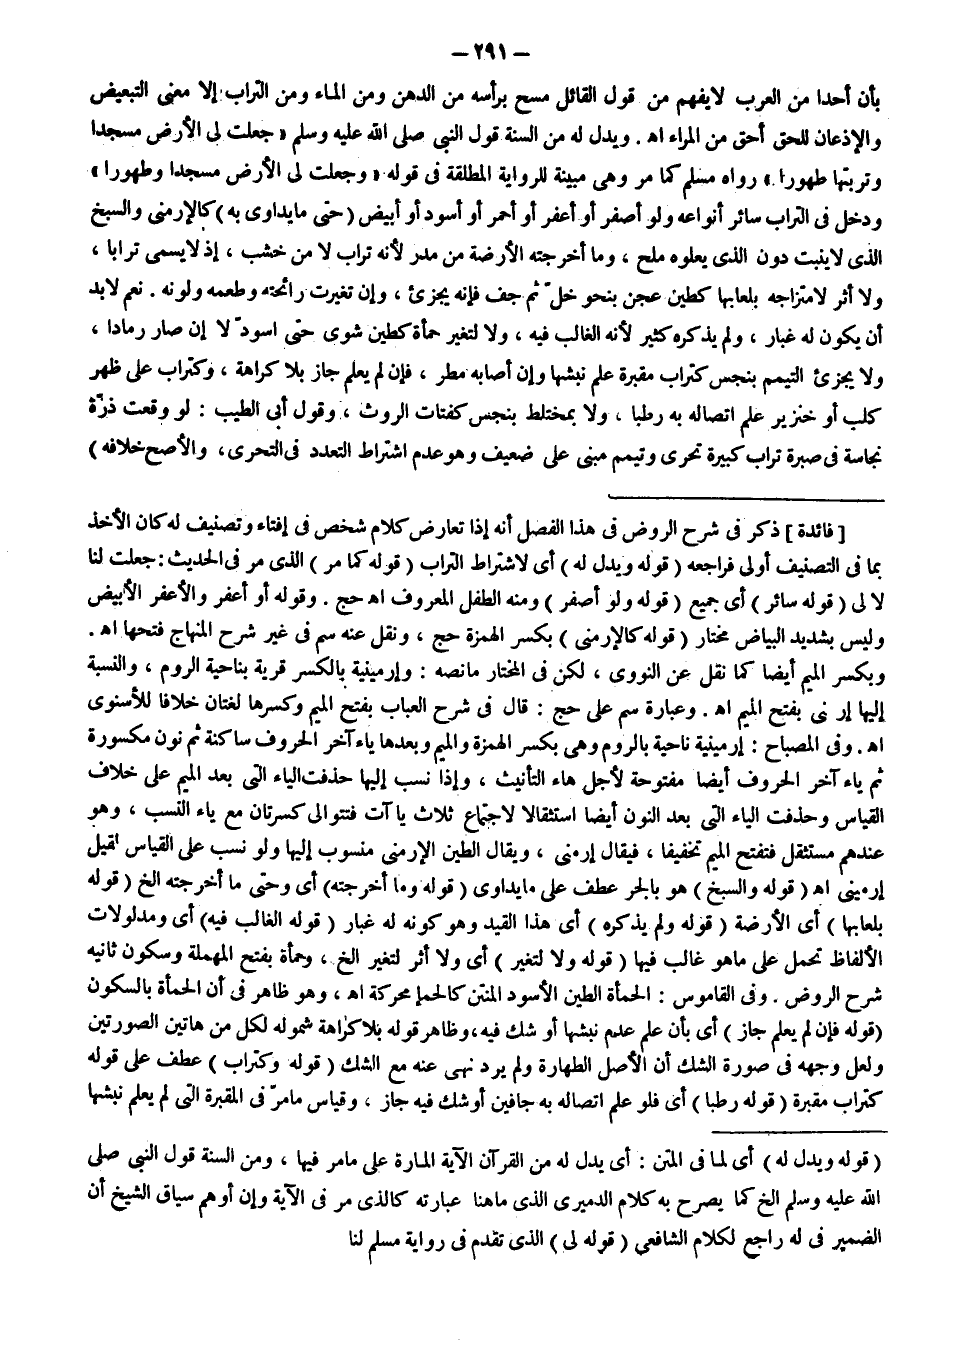 — ٢٩١ —
بأن أحدا من العرب لايفهم من قول القائل مسح برأسه من الدهن ومن الماء ومن التراب إلا معنى التبعيض
والإذعان للحق أحق من المراء اه . ويدل له من السنة قول النبى صلى الله عليه وسلم « جعلت لى الأرض مسجدا
وتربتها طهورا » رواه مسلم كما مر وهى مبينة للرواية المطلقة فى قوله « وجعلت لى الأرض مسجدا وطهورا »
ودخل فى التراب سائر أنواعه ولو أصفر أو أعفر أو أحمر أو أسود أو أبيض (حتى مايداوى به) كالإرمنى والسبخ
الذى لاينبت دون الذى يعلوه ملح ، وما أخرجته الأرضة من مدر لأنه تراب لا من خشب ، إذ لايسمى ترابا ،
ولا أثر لامتزاجه بلعابها كطين عجن بنحو خلّ ثم جف فإنه يجزئ ، وإن تغيرت رائحته وطعمه ولونه . نعم لابد
أن يكون له غبار ، ولم يذكره كثير لأنه الغالب فيه ، ولا لتغير حمأة كطين شوى حتى اسودّ لا إن صار رمادا ،
ولا يجزئ التيمم بنجس كتراب مقبرة علم نبشها وإن أصابه مطر ، فإن لم يعلم جاز بلا كراهة ، وكتراب على ظهر
كلب أو خنزير علم اتصاله به رطبا ، ولا بمختلط بنجس كفتات الروث ، وقول أبى الطيب : لو وقعت ذرّة
نجاسة فى صبرة تراب كبيرة تحرى وتيمم مبنى على ضعيف وهو عدم اشتراط التعدد فى التحرى ، والأصح خلافه )
[ فائدة ] ذكر فى شرح الروض فى هذا الفصل أنه إذا تعارض كلام شخص فى إفتاء وتصنيف له كان الأخذ
بما فى التصنيف أولى فراجعه ( قوله ويدل له ) أى لاشتراط التراب ( قوله كما مر ) الذى مر فى الحديث : جعلت لنا
لا لى ( قوله سائر ) أى جميع ( قوله ولو أصفر ) ومنه الطفل المعروف اه حج . وقوله أو أعفر والأعفر الأبيض
وليس بشديد البياض مختار ( قوله كالإرمنى ) بكسر الهمزة حج ، ونقل عنه سم فى غير شرح المنهاج فتحها اه .
وبكسر الميم أيضا كما نقل عن النووى ، لكن فى المختار مانصه : وإرمينية بالكسر قرية بناحية الروم ، والنسبة
إليها إرنى بفتح الميم اه . وعبارة سم على حج : قال فى شرح العباب بفتح الميم وكسرها لغتان خلافا للأسنوى
اه . وفى المصباح : إرمينية ناحية بالروم وهى بكسر الهمزة والميم وبعدها ياء آخر الحروف ساكنة ثم نون مكسورة
ثم ياء آخر الحروف أيضا مفتوحة لأجل هاء التأنيث ، وإذا نسب إليها حذفت الياء التى بعد الميم على خلاف
القياس وحذفت الياء التى بعد النون أيضا استثقالا لاجتماع ثلاث ياآت فتتوالى كسرتان مع ياء النسب ، وهو
عندهم مستثقل فتفتح الميم تخفيفا ، فيقال إرمنى ، ويقال الطين الإرمنى منسوب إليها ولو نسب على القياس لقيل
إرمينى اه ( قوله والسبخ ) هو بالجر عطف على مايداوى ( قوله وما أخرجته) أى وحتى ما أخرجته الخ ( قوله
بلعابها ) أى الأرضة ( قوله ولم يذكره ) أى هذا القيد وهو كونه له غبار ( قوله الغالب فيه) أى ومدلولات
الألفاظ تحمل على ماهو غالب فيها ( قوله ولا لتغير ) أى ولا أثر لتغير الخ ، وحمأة بفتح المهملة وسكون ثانيه
شرح الروض . وفى القاموس : الحمأة الطين الأسود المنتن كالحمإ محركة اه ، وهو ظاهر فى أن الحمأة بالسكون
(قوله فإن لم يعلم جاز ) أى بأن علم عدم نبشها أو شك فيه ، وظاهر قوله بلا كراهة شموله لكل من هاتين الصورتين
ولعل وجهه فى صورة الشك أن الأصل الطهارة ولم يرد نهى عنه مع الشك ( قوله وكتراب ) عطف على قوله
كتراب مقبرة ( قوله رطبا ) أى فلو علم اتصاله به جافين أو شك فيه جاز ، وقياس مامرّ فى المقبرة التى لم يعلم نبشها
( قوله ويدل له ) أى لما فى المتن : أى يدل له من القرآن الآية المارة على مامر فيها ، ومن السنة قول النبى صلى
الله عليه وسلم الخ كما يصرح به كلام الدميرى الذى ماهنا عبارته كالذى مر فى الآية وإن أوهم سياق الشيخ أن
الضمير فى له راجع لكلام الشافعى ( قوله لى ) الذى تقدم فى رواية مسلم لنا